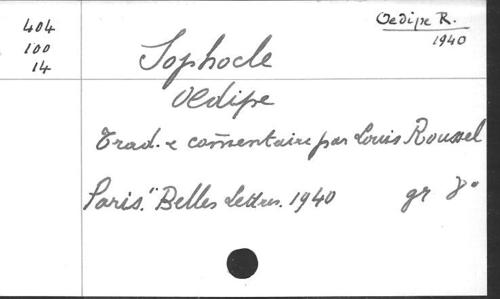 404
100
14
Oedipe R.
1940
Sophocle
Oedipe
Trad. e commentaire par Louis Roussel
Paris. "Belles Lettres. 1940 gr 8°